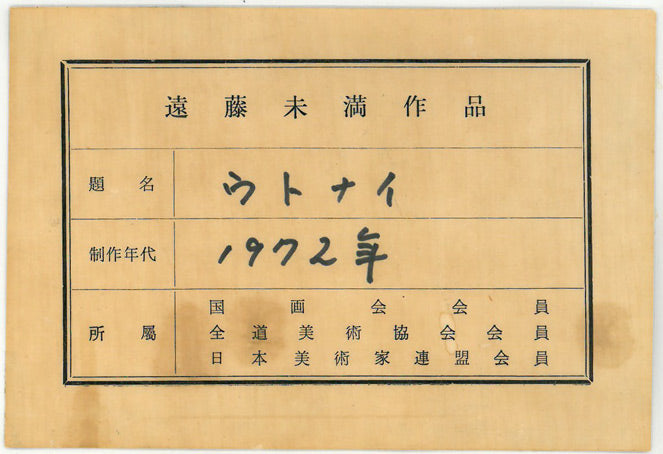 遠藤未満作品
題名 ウトナイ
制作年代 1972年
国画会会員
所屬 全道美術協会会員
日本美術家連盟会員